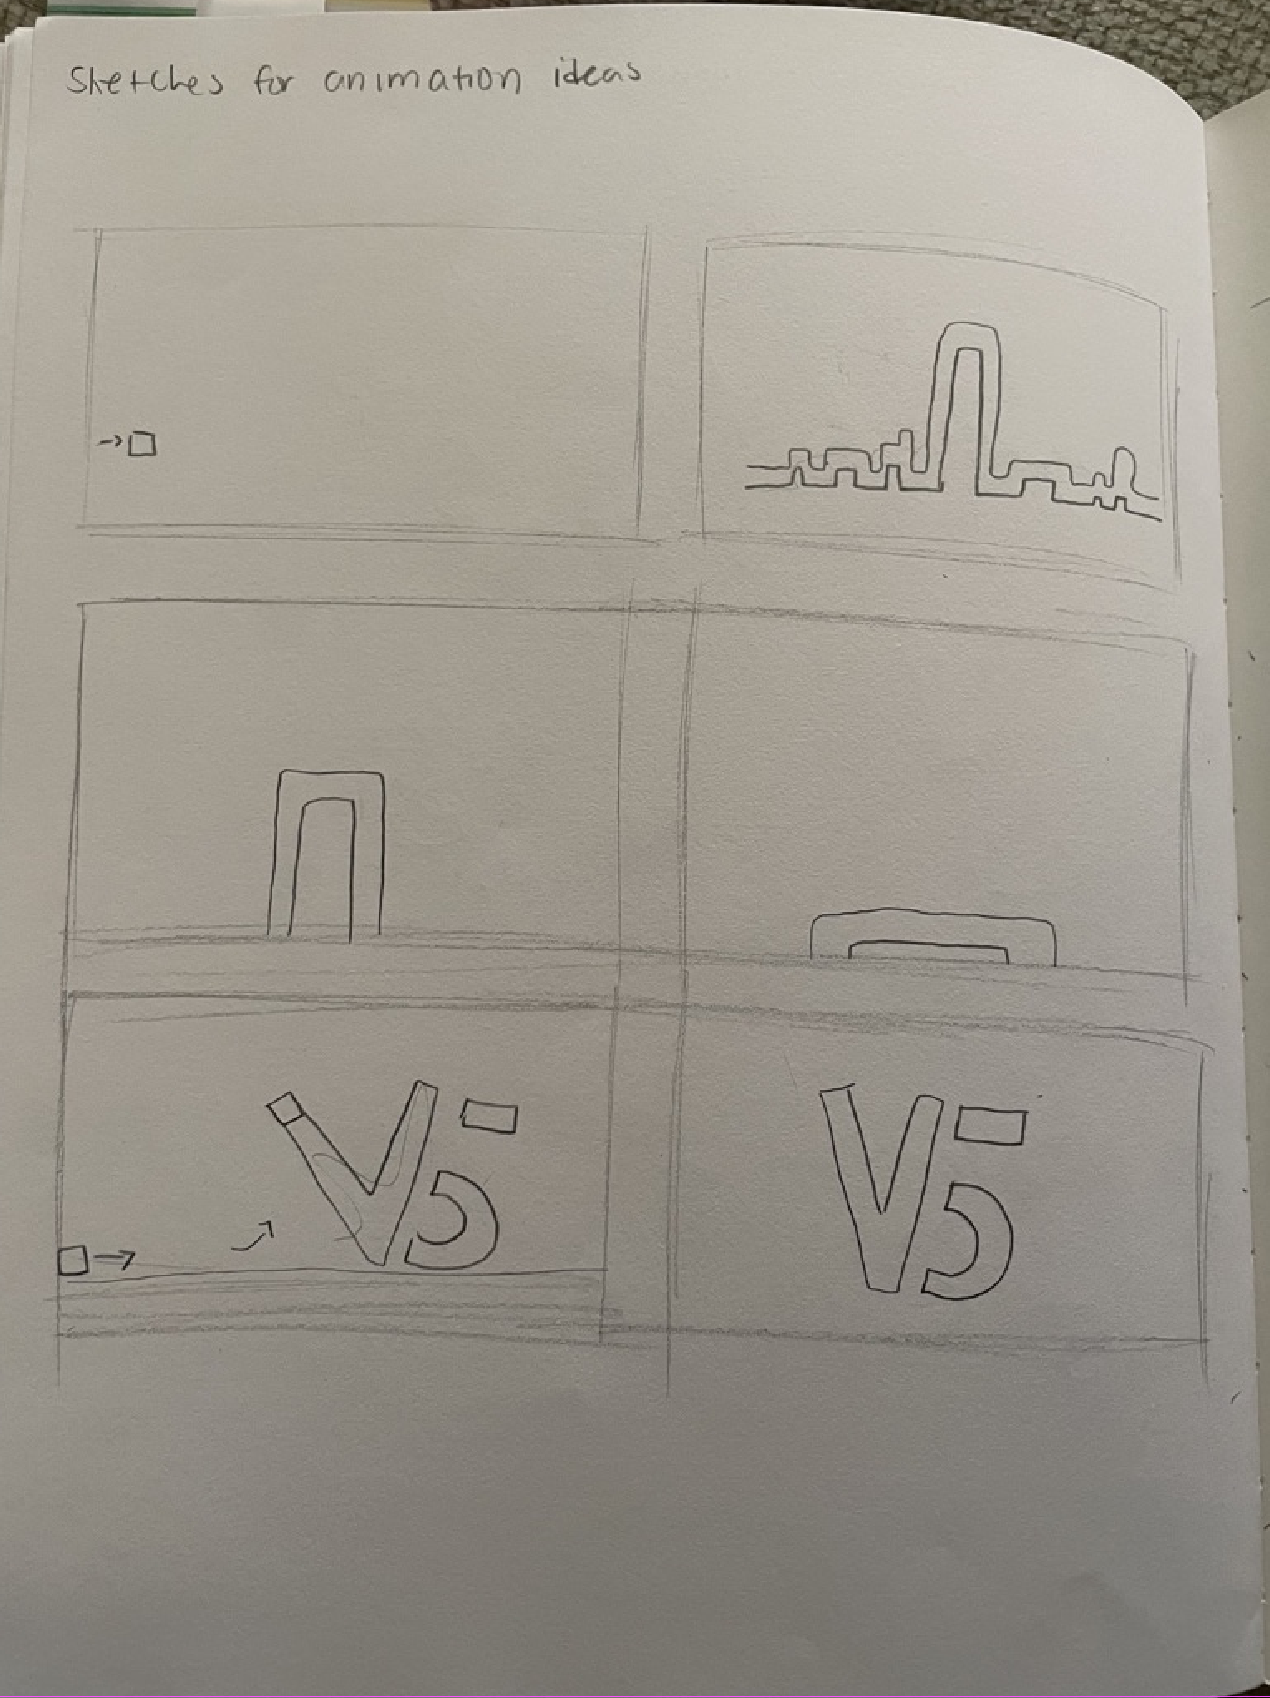 Sketches for animation ideas
V5
V5